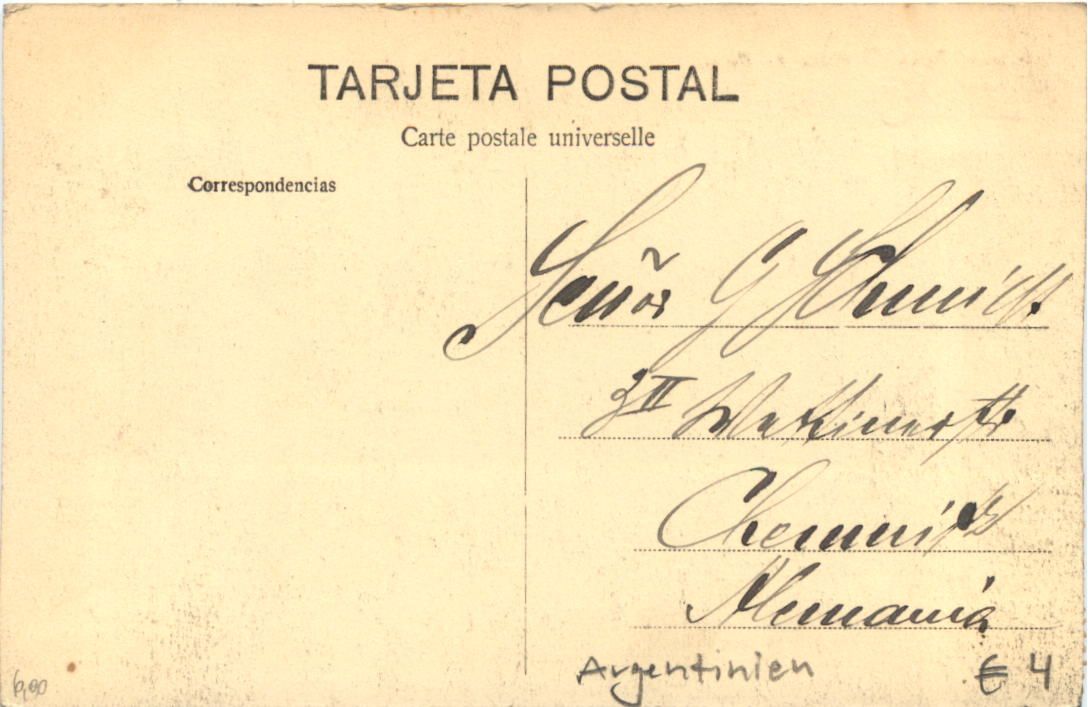 TARJETA POSTAL
Carte postale universelle
Correspondencias
Señor G Schmidt.
3 II Wettinerstr
Chemnitz
Alemania
Argentinien € 4
6,90